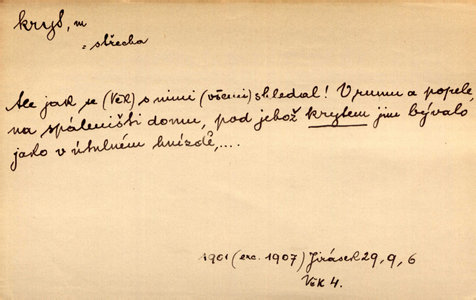 kryt, m
= střecha
Ale jak se (Věk) s nimi (všemi) shledal! V rumu a popele
na spáleništi domu, pod jehož krytem jim bývalo
jako v útulném hnízdě,....
1901 (exc. 1907) Jirásek 29, 9, 6
Věk 4.